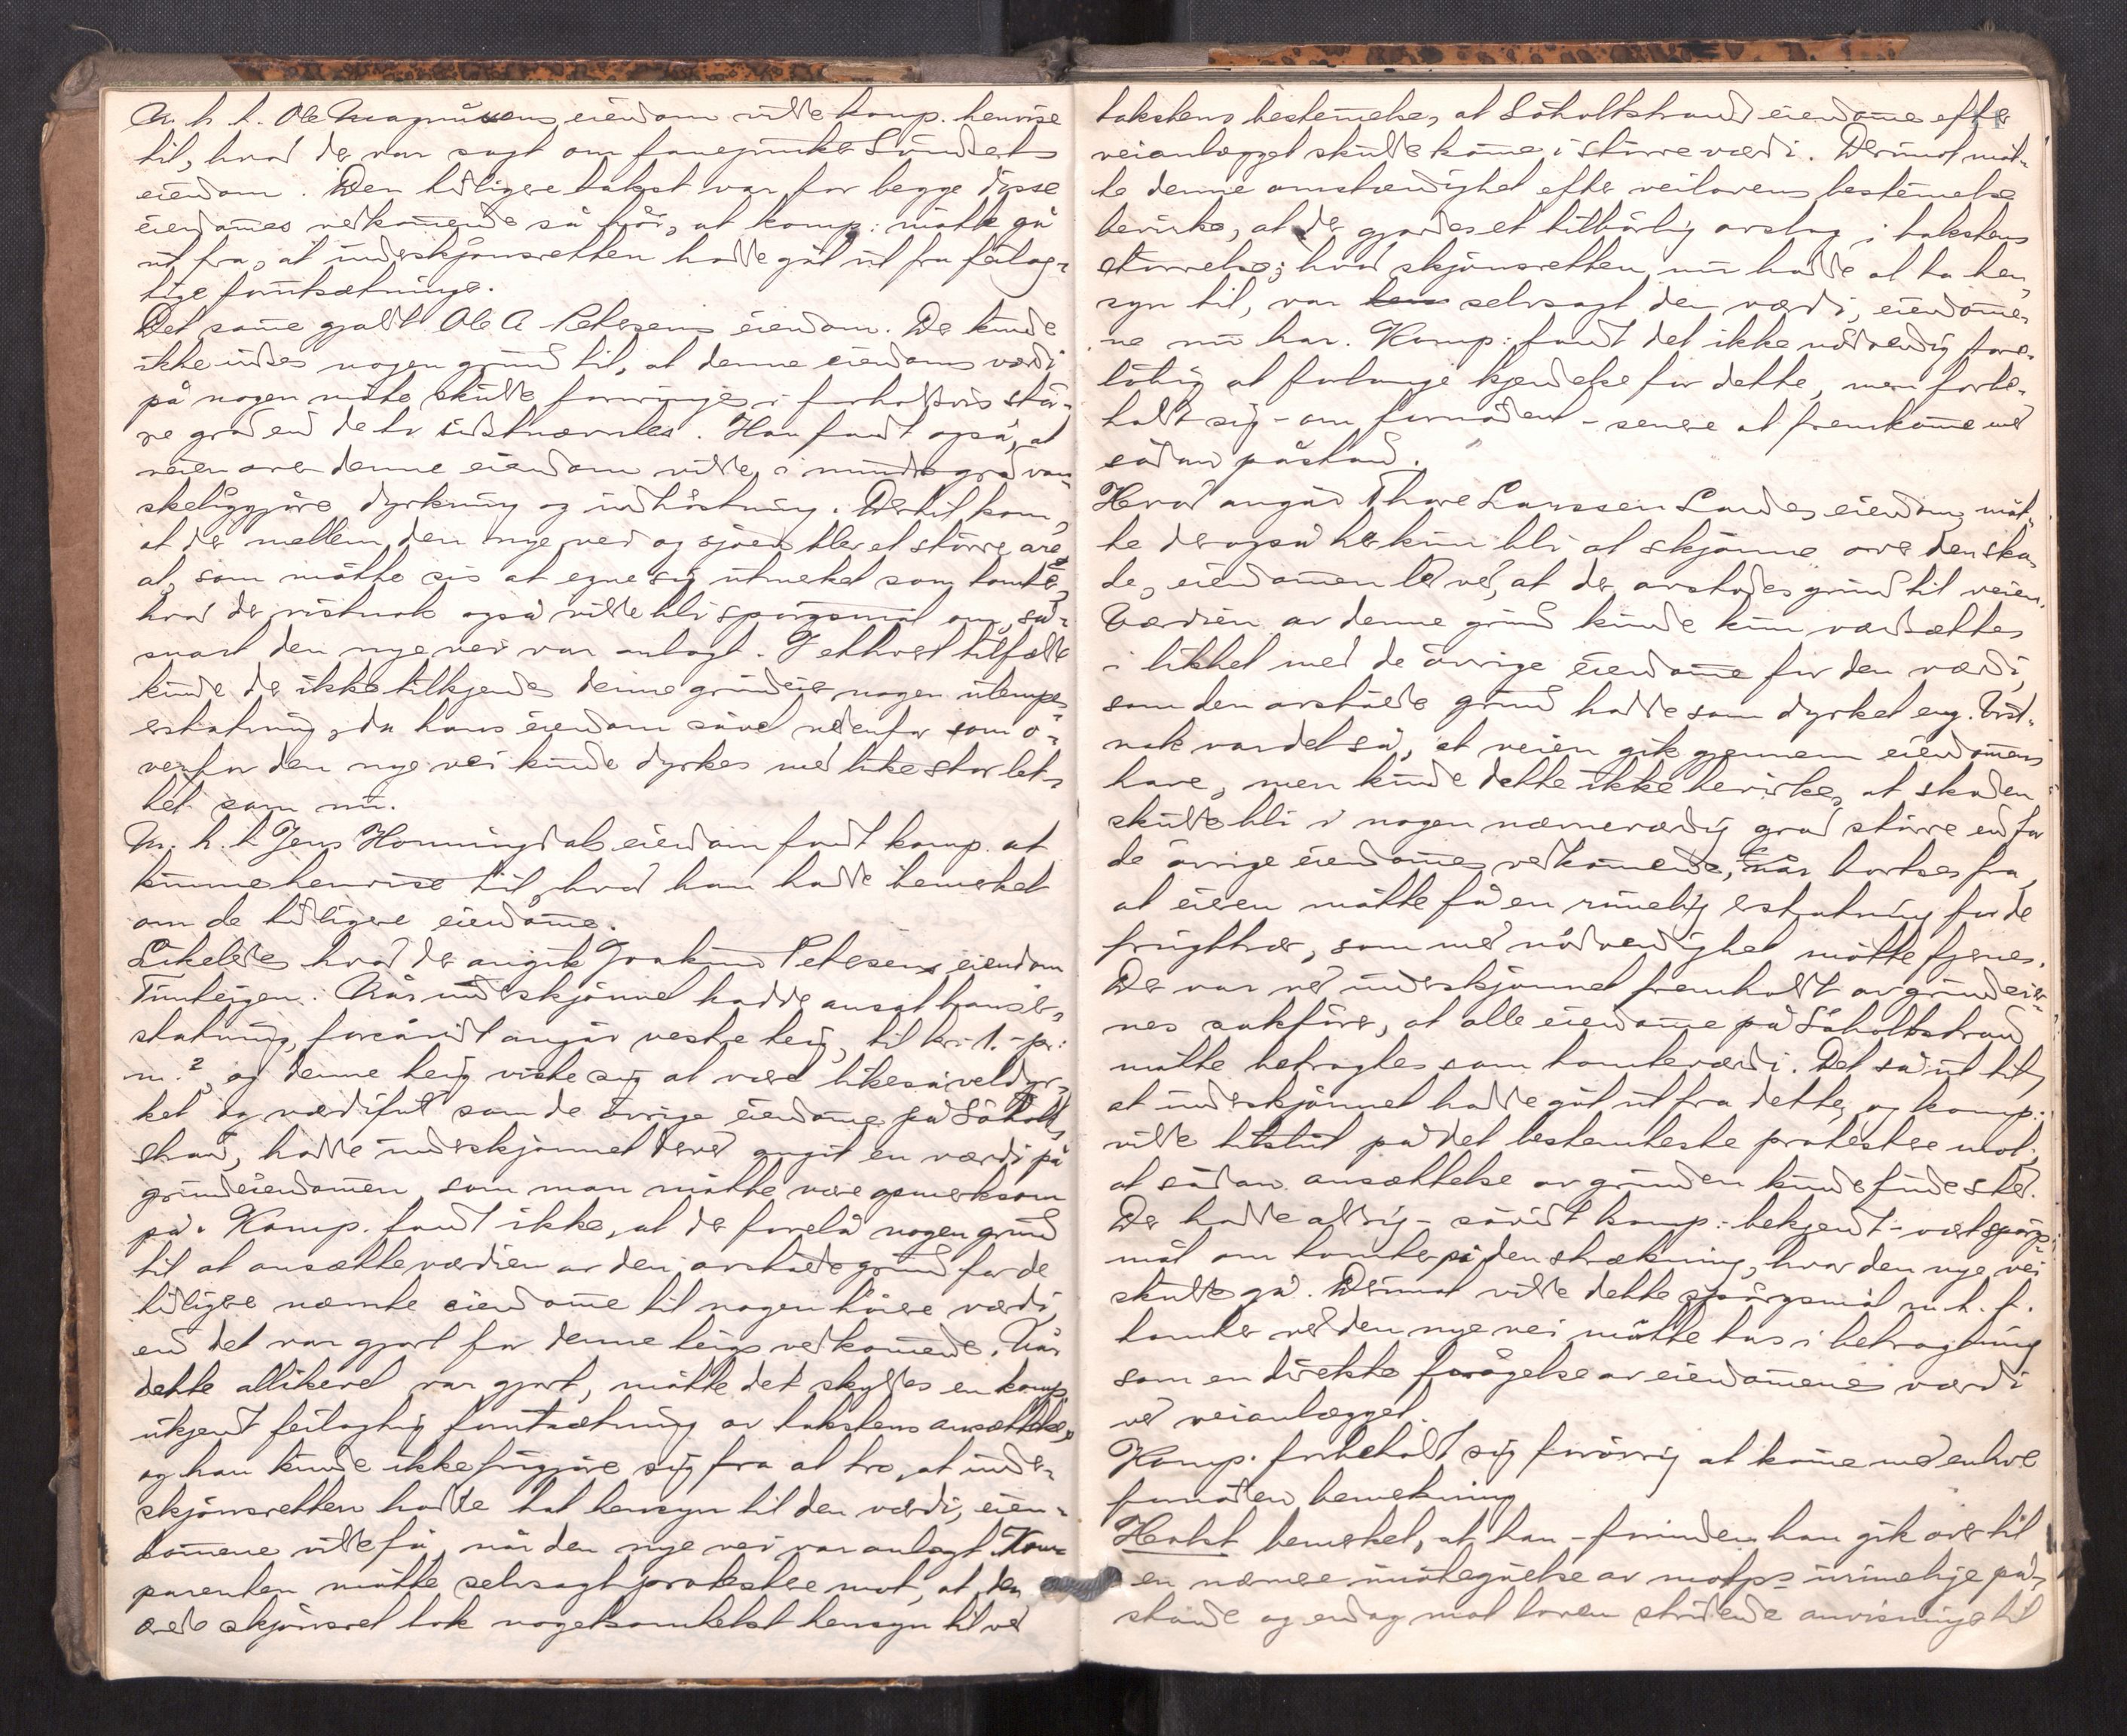 M. h. t. Ole Magnussens eiendom vilde komp. henvise
til, hvad der var sagt om fanejunker Sundsets
eiendom. Den tidligere takst var for begge disse
eiendommes vedkommende så høi, at komp: måtte gå
ut fra, at underskjønsretten hadde gåt ut fra feilag-
tige forutsætninger.
Det samme gjaldt Ole A. Petersens eiendom. Der kunde
ikke indses nogen grund til, at denne eiendoms værdi
på nogen måte skulde forringes i forholdsvis stør-
re grad end de to sidstnævntes. Han fandt også, at
veien over denne eiendom vilde i mindre grad van-
skeliggjøre dyrkning og indhøstning. Dertil kom,
at der mellem den nye vei og sjøen blev et større are-
al, som måtte sies at egne sig utmerket som tomter,
hvad der vistnok også vilde bli spørgsmål om, så-
snart den nye vei var anlagt. I ethvert tilfælde
kunde der ikke tilkjendes denne grundeier nogen ulempe-
erstatning, da hans eiendom såvel nedenfor som o-
venfor den nye vei kunde dyrkes med like stor let-
het som nu.
M. h. t. Jens Honningdals eiendom fandt komp. at
kunne henvise til, hvad han hadde bemerket
om de tidligere eiendomme.
Likeledes hvad der angik Joakim Petersens eiendom
Tunteigen. Når underskjønnet hadde ansat hans er-
statning, forsåvidt angår vestre teig, til kr. 1.- pr:
m.², og denne teig viste sig at være likeså veldyr-
ket og værdifuld som de øvrige eiendomme på Søholt-
strand, hadde underskjønnet derved angit en værdi på
grundeiendommen som man måtte være opmerksom
på. Komp. fandt ikke, at der forelå nogen grund
til at ansætte værdien av den avståtte grund for de
tidligere nævnte eiendomme til nogen høiere værdi,
end det var gjort for denne teigs vedkommende. Når
dette allikevel var gjort, måtte det skyldes en komp.
ukjendt feilagtig forutsætning av takstens ansættelse,
og han kunde ikke frigjøre sig fra at tro, at under-
skjønsretten hadde tat hensyn til den værdi, eien-
dommene vilde få, når den nye vei var anlagt. Kom-
parenten måtte selvsagt protestere mot, at den
ærede skjønsret tok nogetsomhelst hensyn til ved
takstens bestemmelse, at Søholtstrand eiendomme efter
veianlægget skulde komme i større værdi. Derimot måt-
te denne omstændighet efter veilovens bestemmelse
bevirke, at der gjordes et tilbørlig avslag i takstens
størrelse; hvad skjønsretten nu hadde at ta hen-
syn til, var selvsagt den værdi, eiendomme-
ne nu har. Komp: fandt det ikke nødvendig fore-
løbig at forlange kjendelse for dette, men forbe-
holdt sig - om fornødent - senere at fremkomme med
sådan påstand.
Hvad angår Thore Larssen Landes eiendom, måt-
te der også her kun bli at skjønne over den ska-
de, eiendommen led ved, at der avstodes grund til veien.
Værdien av denne grund kunde kun værdsættes
i likhet med de øvrige eiendomme for den værdi,
som den avståtte grund hadde som dyrket eng. Vist-
nok var det så, at veien gik gjennem eiendommens
have, men kunde dette ikke bevirke, at skaden
skulde bli i nogen nævneværdig grad større end for
de øvrige eiendommes vedkommende, når bortses fra,
at eieren måtte få en rimelig erstatning for de
frugttrær, som med nødvendighet måtte fjernes.
Der var ved underskjønnet fremholdt av grundeier-
nes sakfører, at alle eiendomme på Søholtstrand
måtte betragtes som tomteværdi. Det så ut til,
at underskjønnet hadde gåt ut fra dette, og komp:
vilde tilslut på det bestemteste protestere mot,
at sådan ansættelse av grunden kunde finde sted.
Der hadde aldrig - såvidt komp: bekjendt - vært spørgs-
mål om tomter på den strækning, hvor den nye vei
skulde gå. Derimot vilde dette spørgsmål m. h. t.
tomter ved den nye vei måtte tas i betragtning
som en direkte forøgelse av eiendommenes værdi
ved veianlægget.
Komp. forbeholdt sig forøvrig at komme med enhver
fornøden bemerkning
Holst bemerket, at han - forinden han gik over til
en nærmere imøtegåelse av motp:s urimelige på-
stande og endog mot loven stridende anvisninger til